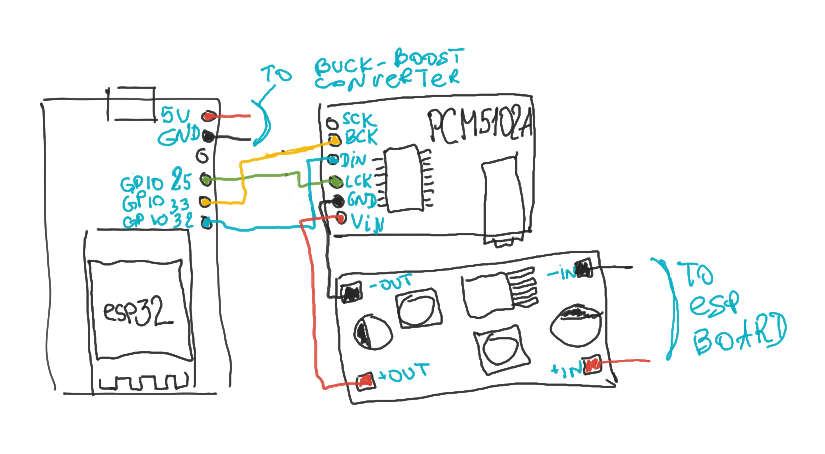 TO
BUCK-BOOST
CONVERTER
5V
GND
GPIO 25
GPIO 33
GPIO 32
esp32
SCK
BCK
DiN
LCK
GND
ViN
PCM5102A
-OUT
+OUT
-IN
+IN
TO
esp
BOARD